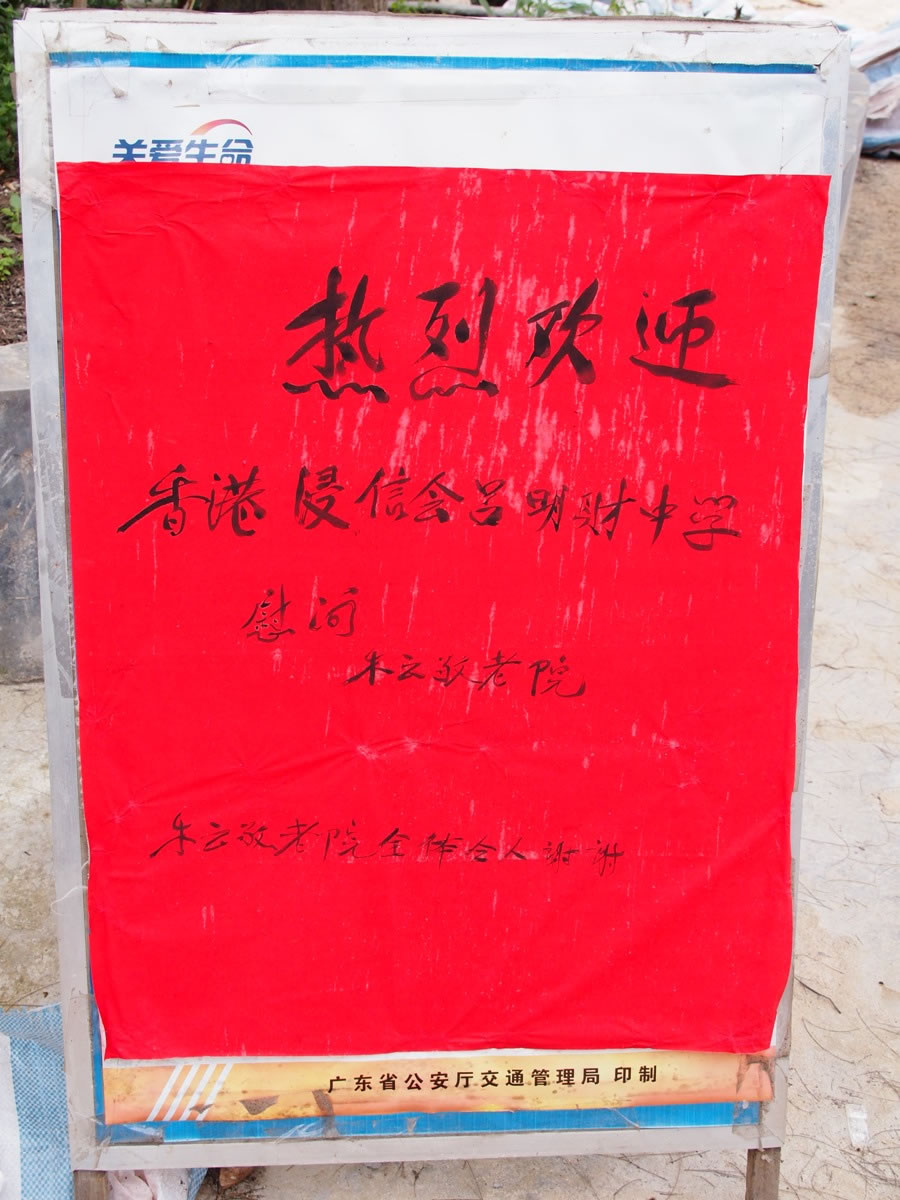 关爱生命
热烈欢迎
香港浸信会吕明财中学
慰问
朱云敬老院
朱云敬老院全体仝人謝謝
广东省公安厅交通管理局 印制